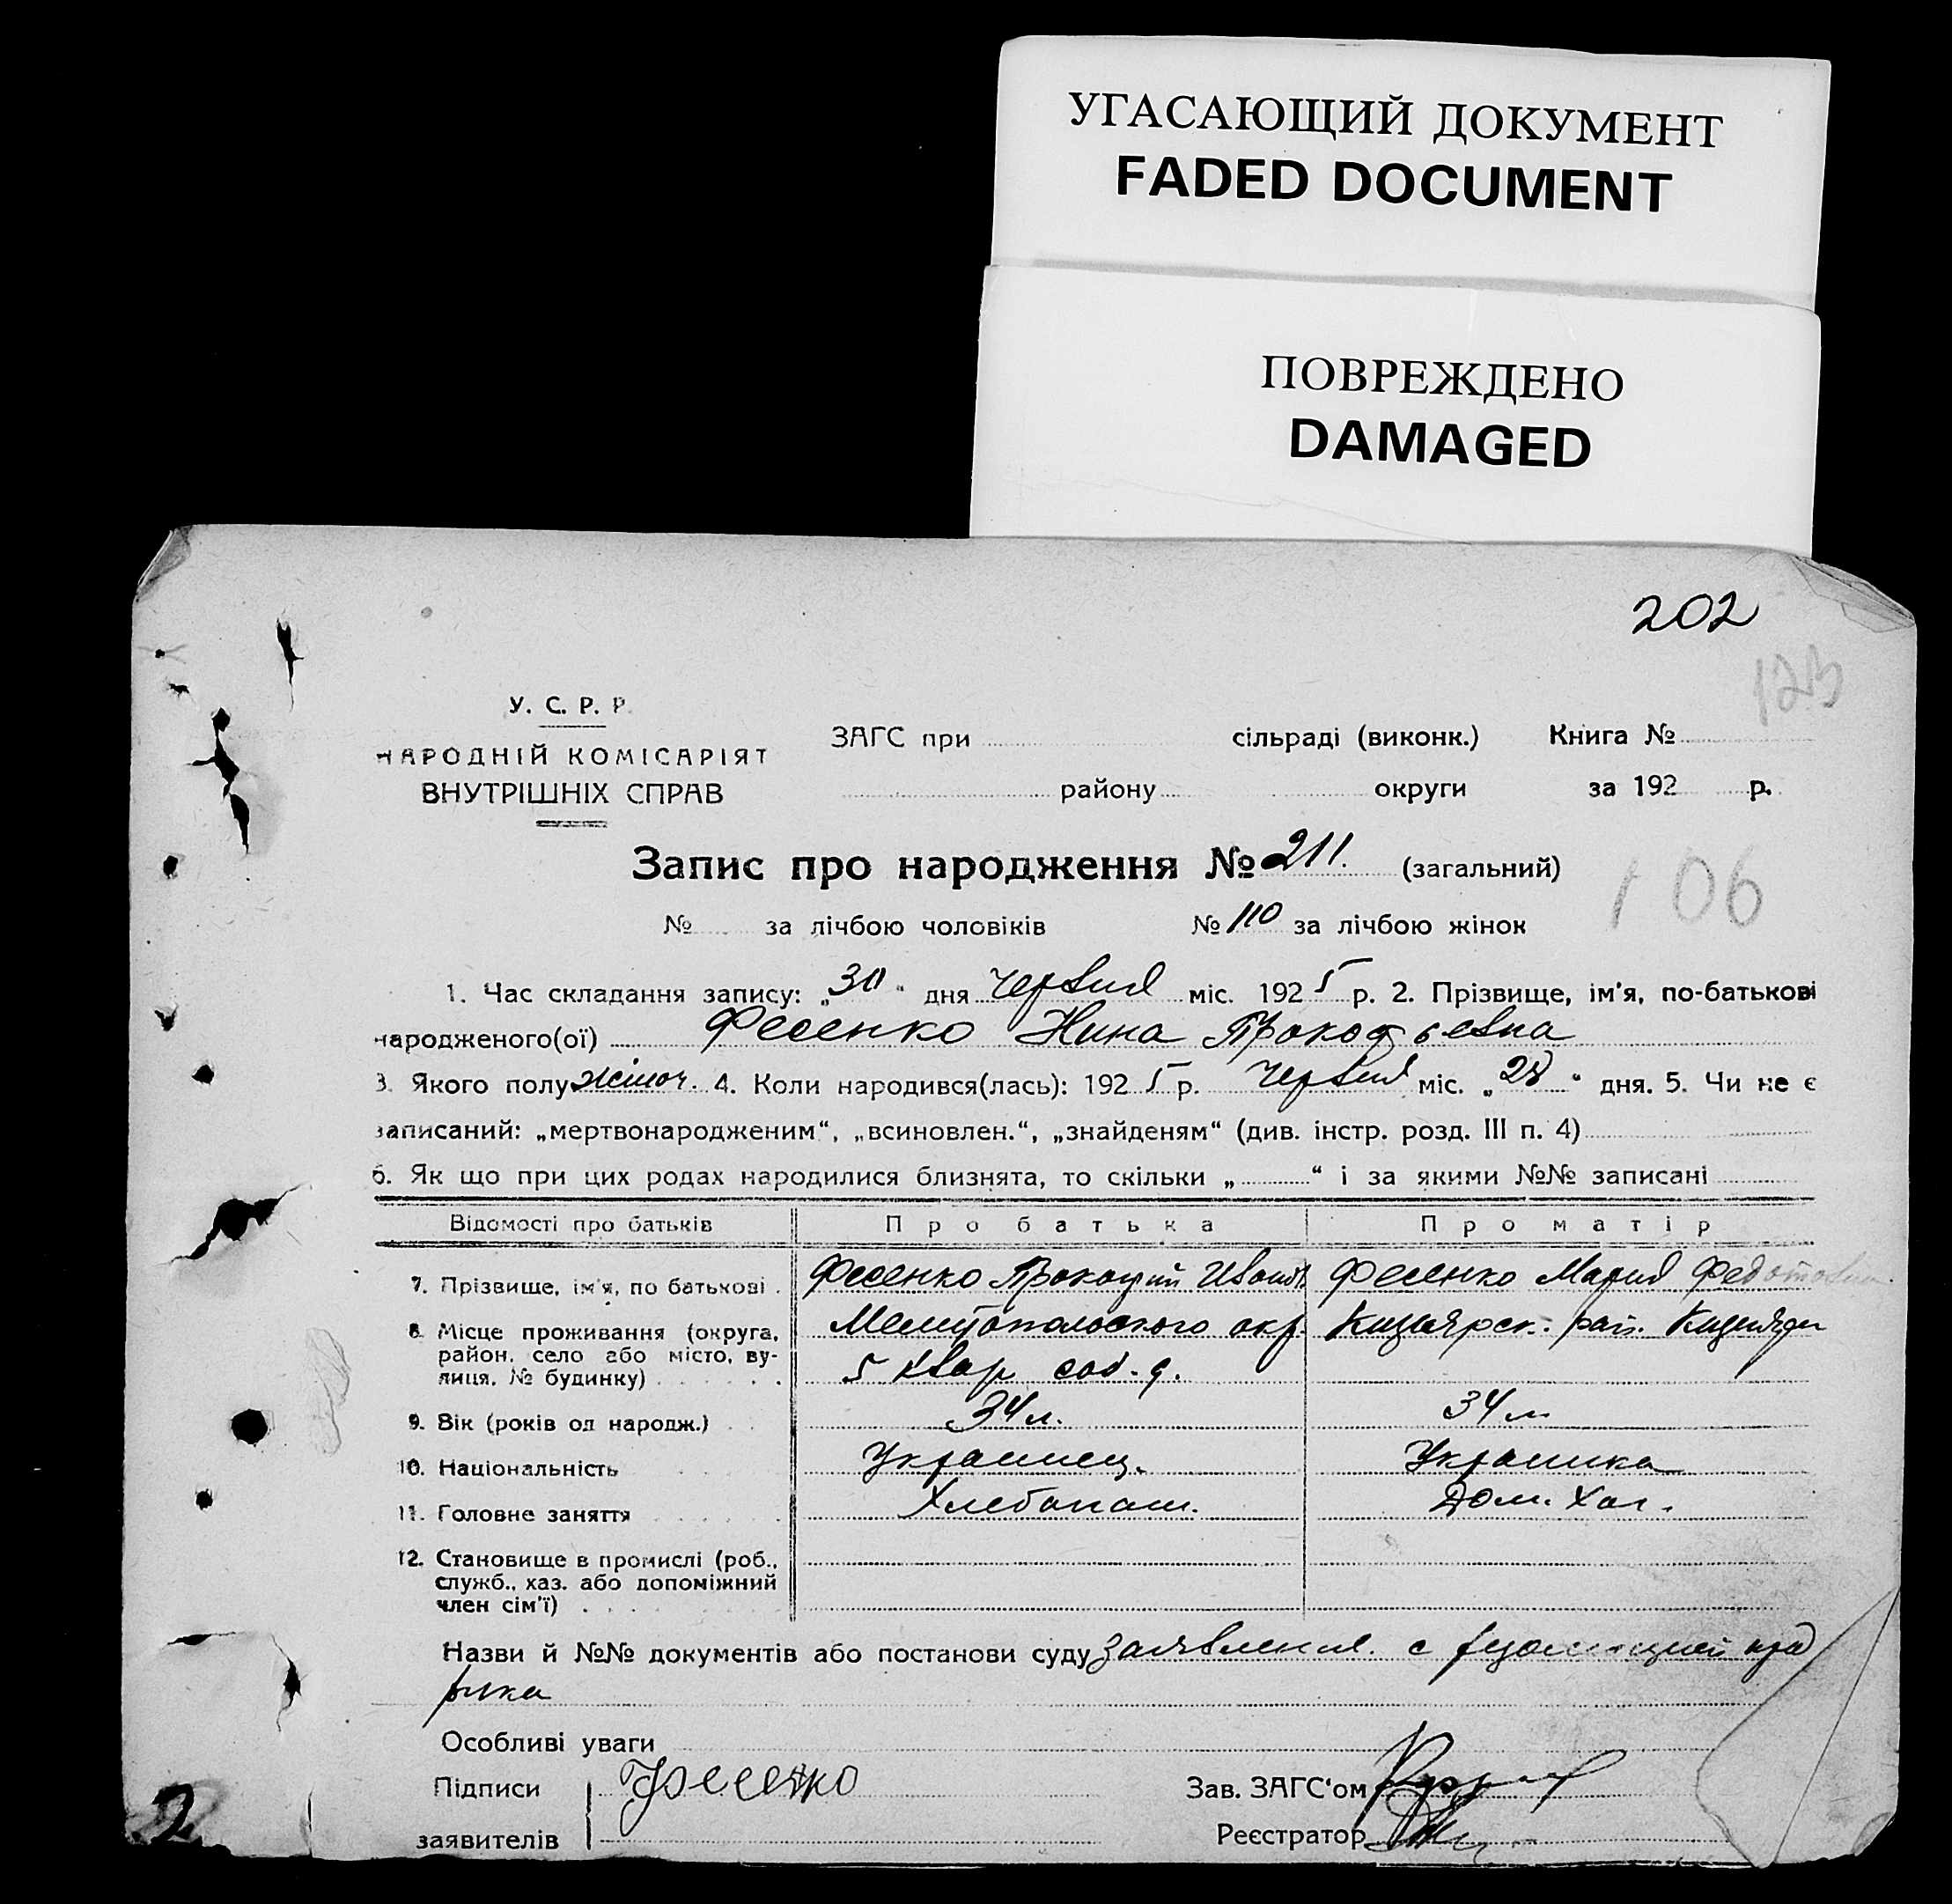 УГАСАЮЩИЙ ДОКУМЕНТ
FADED DOCUMENT
ПОВРЕЖДЕНО
DAMAGED
202
123
У. С. Р. Р.
НАРОДНІЙ КОМІСАРІЯТ
ВНУТРІШНІХ СПРАВ
ЗАГС при сільраді (виконк.) Книга №
району округи за 192 р.
Запис про народження № 211. (загальний)
106
№ за лічбою чоловіків № 110 за лічбою жінок
1. Час складання запису: „30“ дня червня міс. 1925 р. 2. Прізвище, ім'я, по-батькові
народженого(ої) Фесенко Нина Прокофьевна
3. Якого полу жіноч. 4. Коли народився(лась): 1925 р. червня міс. „28“ дня. 5. Чи не є
записаний: „мертвонародженим“, „всиновлен.“, „знайденям“ (див. інстр. розд. III п. 4)
6. Як що при цих родах народилися близнята, то скільки „ “ і за якими №№ записані
Відомості про батьків Про батька Про матір
7. Прізвище, ім'я, по батькові . Фесенко Прокофий Иванов. Фесенко Мария Федотовн.
8. Місце проживання (округа, район, село або місто, вулиця, № будинку) Мелитопольского окр. Кизиярск. рай. Кизияри
5 квар соб. д.
9. Вік (років од народж.) 34 л. 34 л.
10. Національність Украинец. Украинка
11. Головне заняття Хлебопаш. Дом. Хоз.
12. Становище в промислі (роб., служб., хаз. або допоміжний член сім'ї)
Назви й №№ документів або постанови суду Заявление. с
Особливі уваги
Підписи Фесенко Зав. ЗАГС'ом
заявителів Реєстратор
2